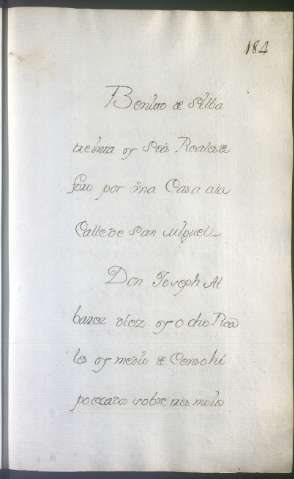 184
Benito de Silba
treinta y Seis Reales de
por vna Casa ala
Calle de San Miguel
Don Joseph Al
barez diez y ocho Rea
les y medio de Censo hi
potecado sobre